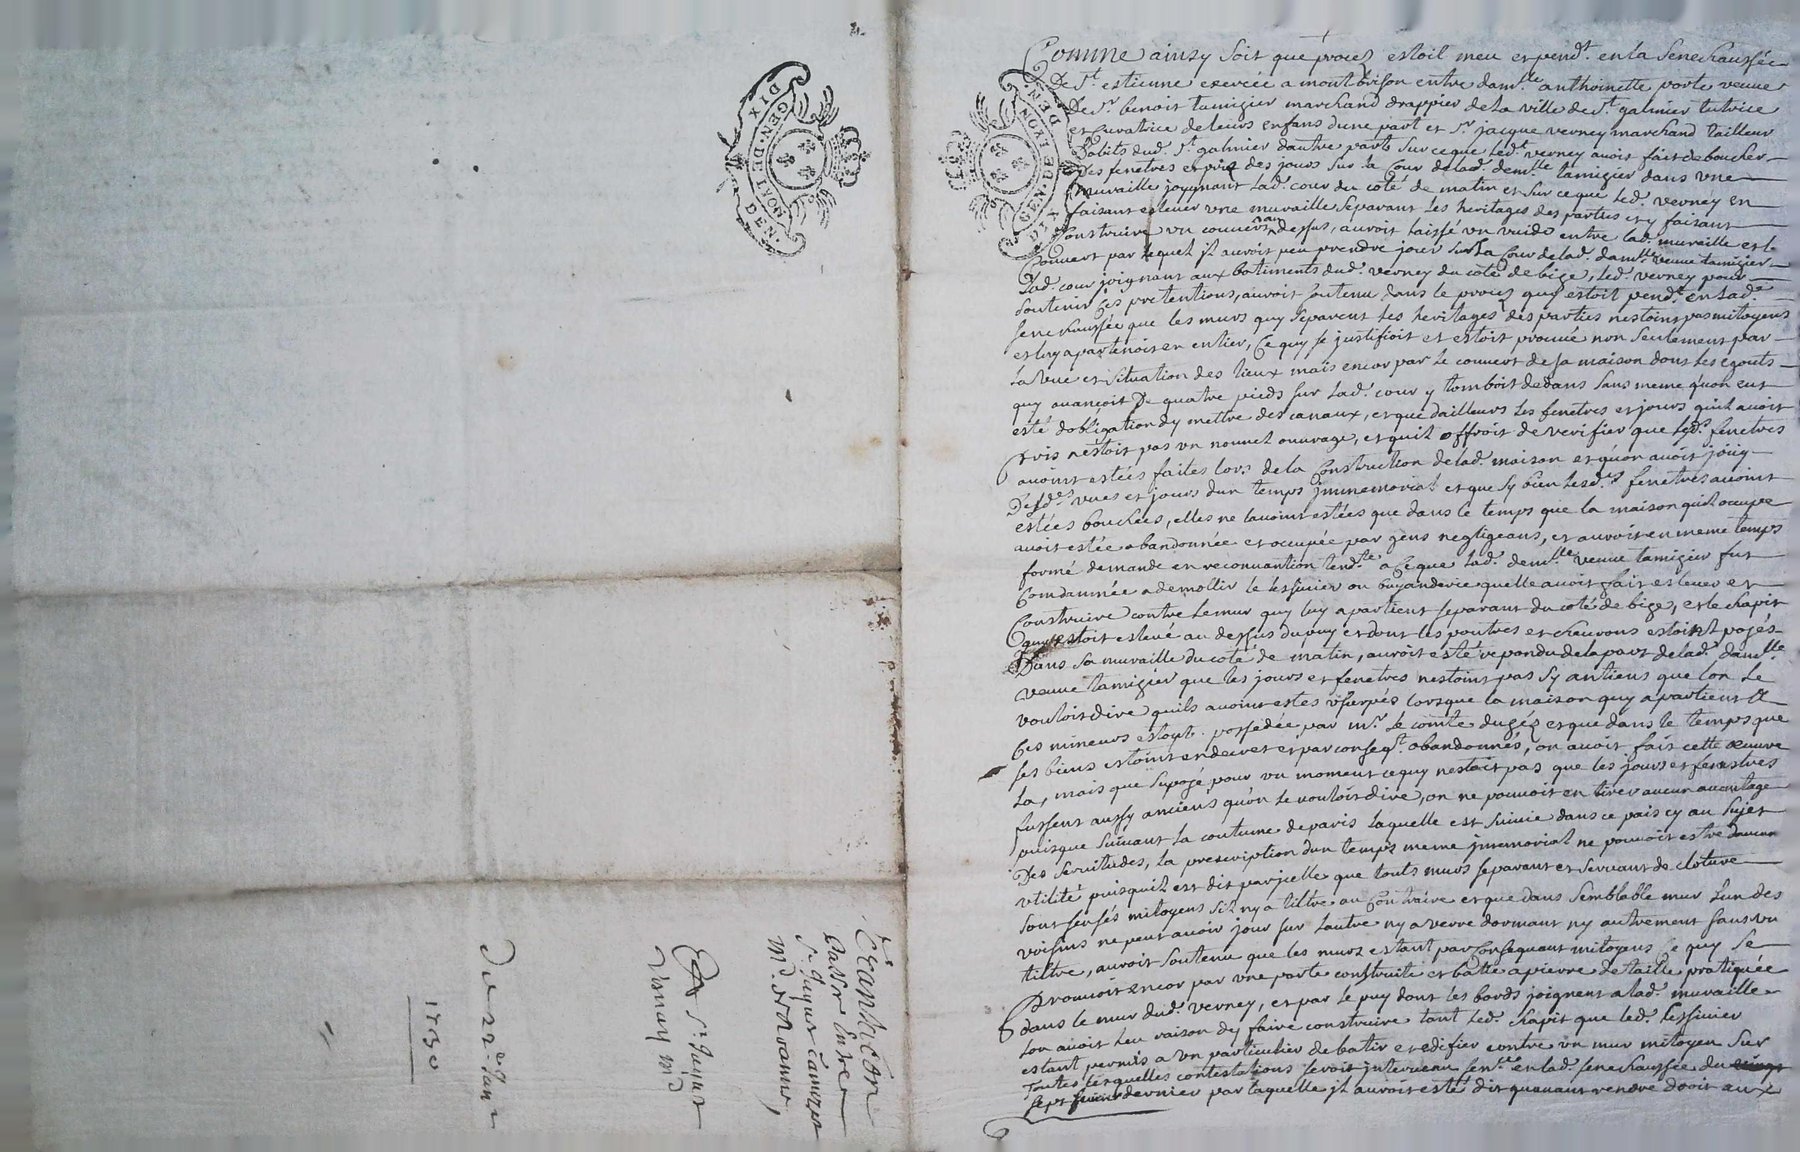 2.
GEN. DE LYON.
DIX DEN.
Transaction
Passée Entre
Sr. Jaque tamizier
Md. A Roanne,
Et Sr. Jaque
Verney Md
Du 22e Janr
1730
GEN. DE LYON.
DIX DEN.
Comme ainsy soit que proces estoit meu et pendt. en la senechaussée
De St. estienne exercée a montbrison entre damlle anthoinette porte veuve
De Sr. benoit tamizier marchand drappier de la ville de St. galmier tutrice
et Curatrice de leurs enfans d'une part et Sr. jacque verney marchand tailleur
d'abits dud. St. galmier d'autre part sur ce que led. verney avoit fait deboucher
Des fenetres et pris des jours sur la Cour de lad. demlle tamizier dans une
muraille joygnant lad. cour du coté de matin et sur ce que led. verney en
faisant eslever une muraille separant les heritages des parties et y faisant
Construire un couvert au dessus, auroit laissé un vuide entre lad. muraille et le
Couvert par lequel il auroit peu prendre jour sur la Cour de lad. damlle veuve tamizier
Lad. cour joignant aux batiments dud. verney du coté de bize, led. verney pour
soutenir ses pretentions, auroit soutenu dans le proces quy estoit pendt. en lad.
senechaussée que les murs quy separent les heritages des parties nestoint pas mitoyens
et luy apartenoit en entier, Ce quy se justifioit et estoit prouvé non seulement par
La vue et situation des lieux mais encor par le couvert de sa maison dont les egouts
quy avançoit De quatre pieds sur lad. cour y tomboit dedans sans meme quon eut
esté dobligation dy mettre des canaux, et que dailleurs les fenetres et jours quil avoit
Pris nestoit pas un nouvel ouvrage, et quil offroit de verifier que lesd. fenetres
avoint estées faites lors de la Construction de lad. maison et quon avoit jouy
Desd. vues et jours dun temps jmmemorial et que sy bien lesd. fenetres avoint
estées bouchées, elles ne lavoint estées que dans le temps que la maison quil occupe
avoit estée abandonnée et occupée par gens negligeans, et auroit en meme temps
formé demande en reconvantion tendte. a Ce que lad. demlle veuve tamizier fut
Comdamnée a demollir le lessivier ou buyanderie quelle avoit fait eslever et
Construire contre le mur quy luy apartient separant du coté de bize, et le chapit
quy estoit eslevé au dessus du puy et dont les poutres et chevrons estoint posés
Dans sa muraille du coté de matin, auroit esté repondu de la part de lad. damlle
veuve tamizier que les jours et fenetres nestoint pas sy antiens que lon le
vouloit dire quils avoint estes usurpés lorsque la maison quy apartient a
Ces mineurs estoit possedée par mr. le comte dugéz et que dans le temps que
ses biens estoint en decret et par conseqt. abandonnés, on avoit fait cette oeuvre
La, mais que suposé pour un moment ce quy nestoit pas que les jours et fenestres
fussent aussy anciens quon le vouloit dire, on ne pouvoit en tirer aucun avantage
puisque suivant la coutume de paris laquelle est suivie dans ce pais cy au sujet
Des servitudes, la prescription dun temps meme jmemorial ne pouvoit estre daucun
utilité puisquil est dit par jcelle que touts murs separant et servant de cloture
sont sensés mitoyens sil ny a tiltre au Contraire et que dans semblable mur lun des
voisins ne peut avoir jour sur lautre ny a verre dormant ny autrement sans un
tiltre, auroit soutenu que les murs estant par Consequant mitoyens Ce quy se
Prouvoit encor par une porte construite et battie a pierre de taille pratiquée
dans le mur dud. verney, et par le puy dont les bords joignent a lad. muraille
Lon avoit heu raison dy faire construire tant led. chapit que led. lessivier
estant permis a un particulier de batir et edifier contre un mur mitoyen sur
Toutes lesquelles contestations seroit intervenu sentce. en lad. senechaussée du
sept dernier par laquelle jl auroit esté dit quavant rendre droit aux